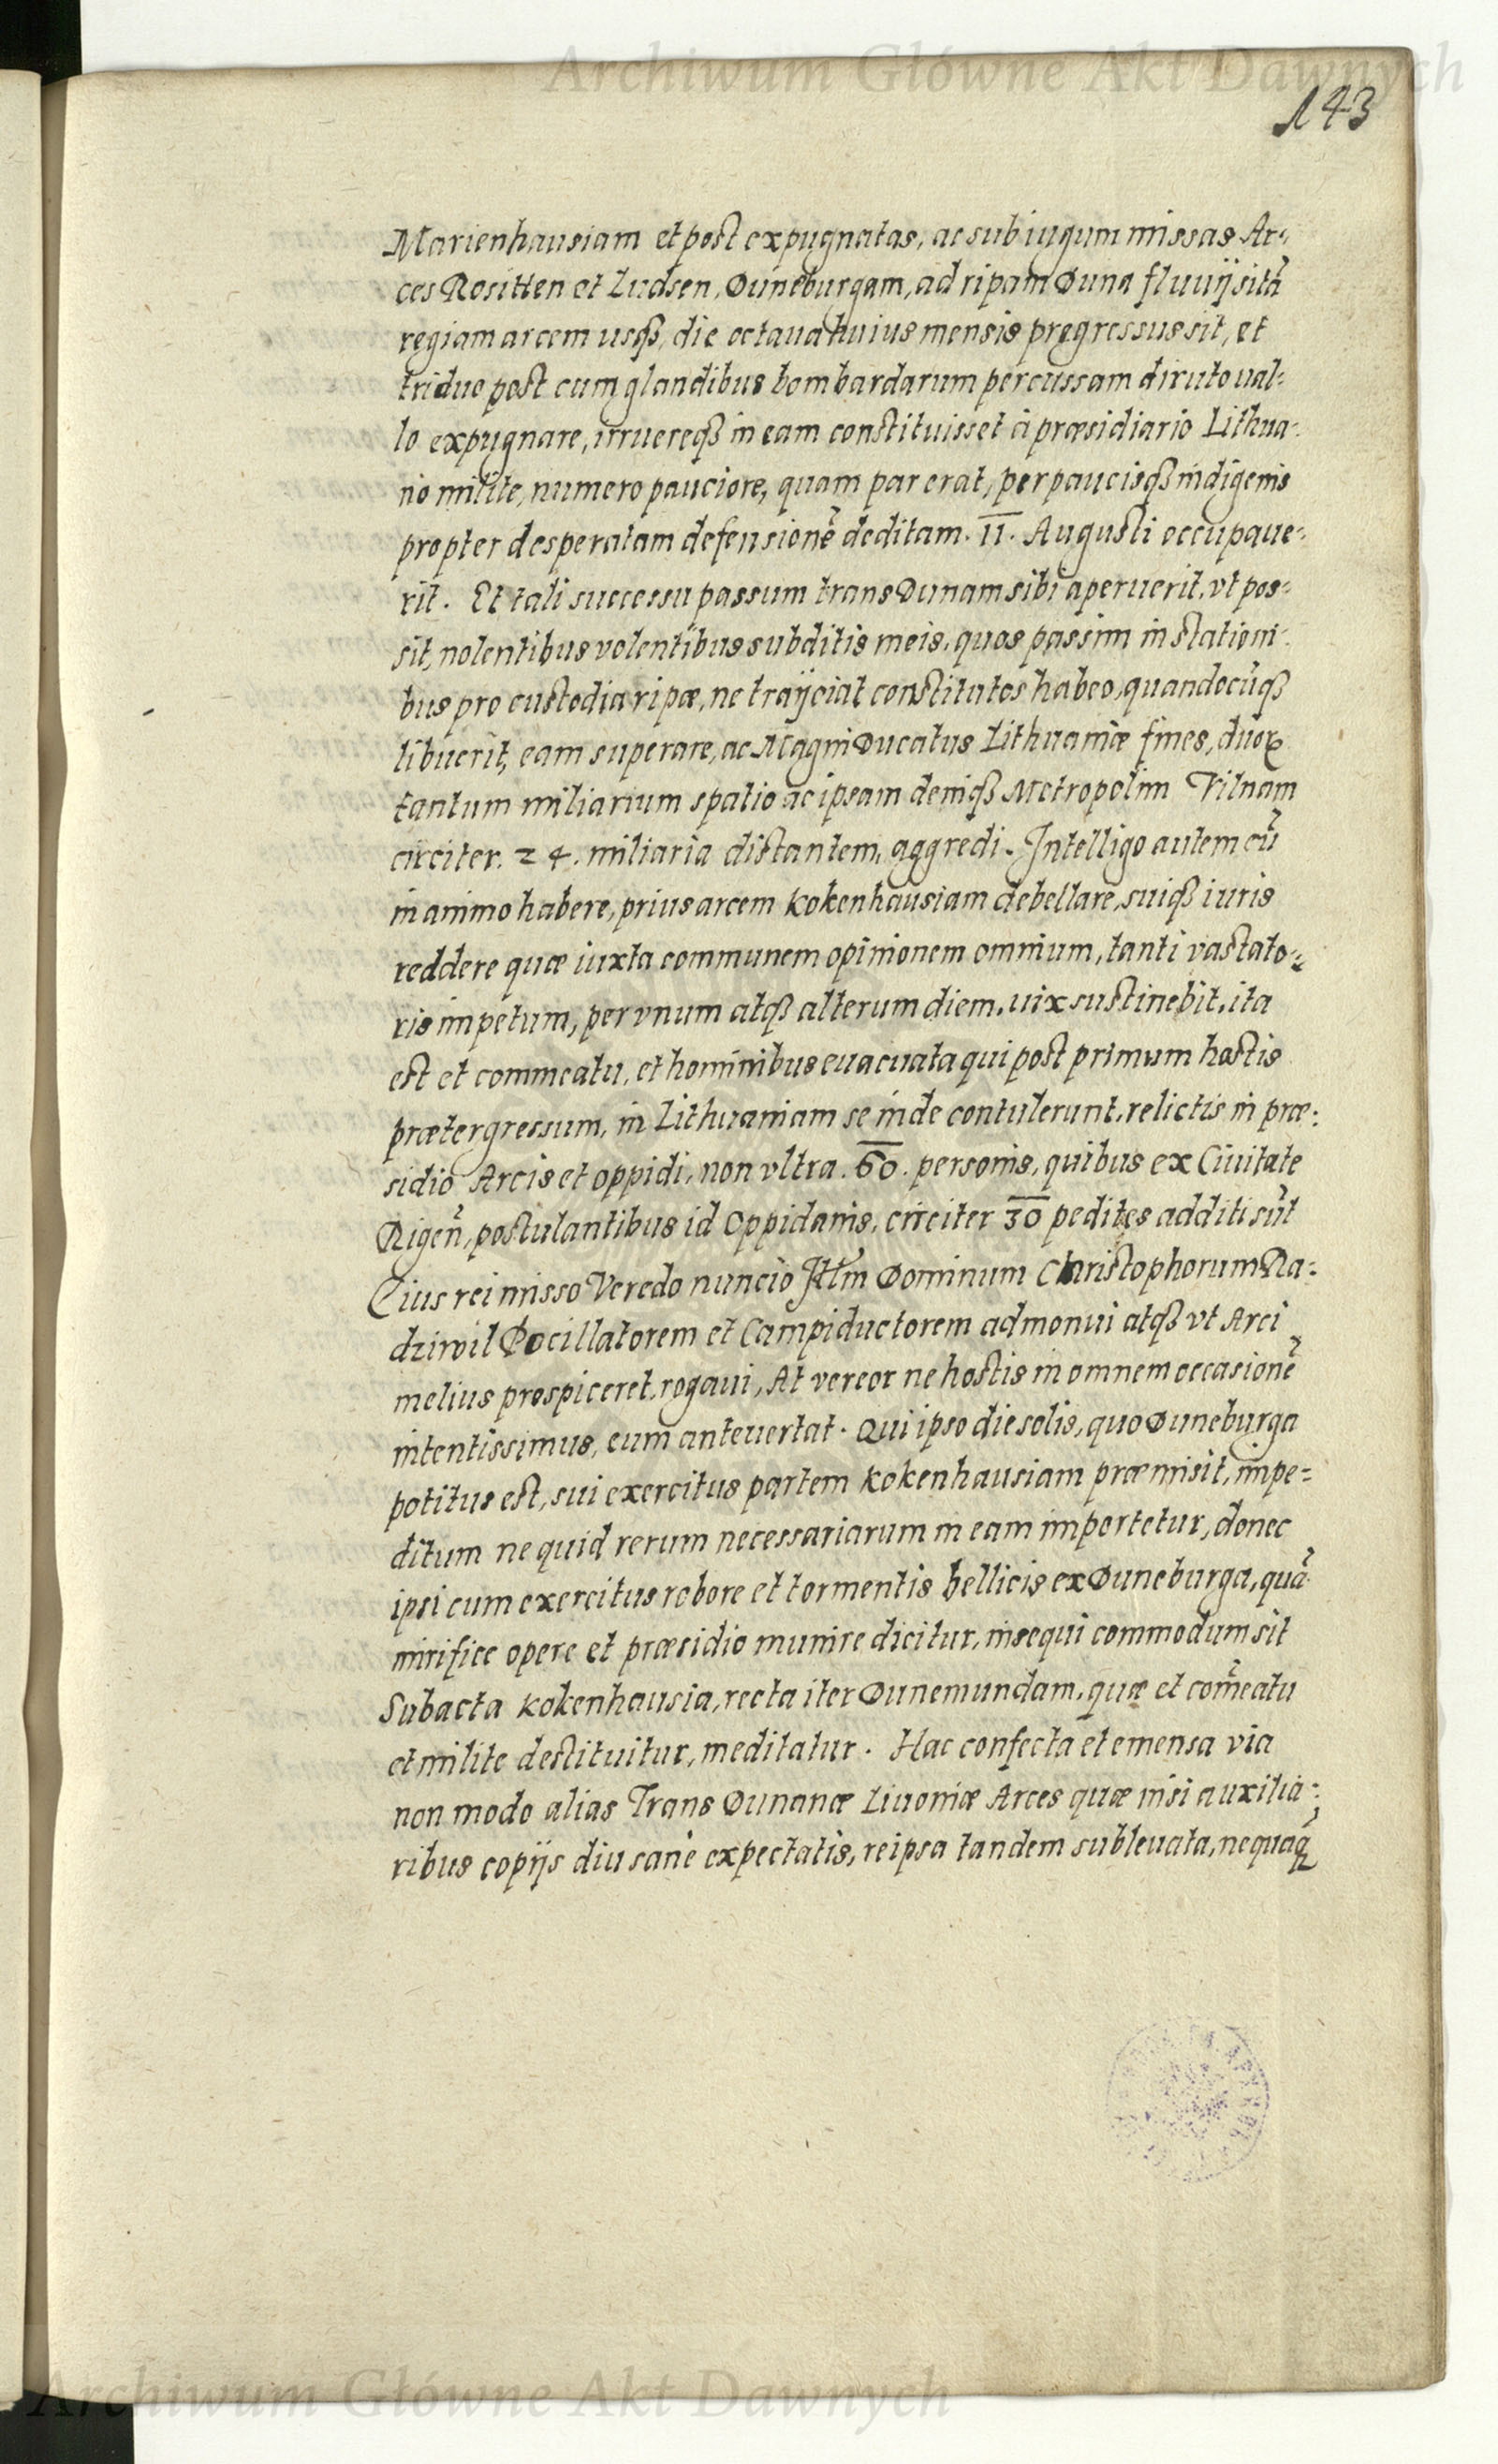 Archiwum Główne Akt Dawnych
143
Marienhausiam et post expugnatas, ac sub iugum missas Ar=
ces Rositten et Ludsen, Duneburgam, ad ripam Duna fluuij sitā
regiam arcem usqꝫ, die octaua huius mensis progressus sit, et
triduo post cum glandibus bombardarum percussam diruto ual=
lo expugnare, irruereqꝫ in eam constituisset à præsidiario Lithua=
no milite, numero pauciore, quam par erat, perpaucisqꝫ indigenis
propter desperatam defensionē deditam. 11. Augusti occupaue=
rit. Et tali successu passum trans Dunam sibi aperuerit, vt pos=
sit, nolentibus volentibus subditis meis, quos passim in stationi=
bus pro custodia ripæ, ne traijciat constitutos habeo, quandocūqꝫ
libuerit, eam superare, ac Magni Ducatus Lithuaniæ fines, duoꝝ
tantum miliarium spatio ac ipsam deniqꝫ Metropolim Vilnam
circiter. 24. miliaria distantem, aggredi. Intelligo autem eū
in animo habere, prius arcem Kokenhausiam debellare, suiqꝫ iuris
reddere quæ iuxta communem opinionem omnium, tanti vastato=
ris impetum, per vnum atqꝫ alterum diem, uix sustinebit, ita
est et commeatu, et hominibus euacuata qui post primum hostis
prætergressum, in Lithuaniam se inde contulerunt, relictis in præ=
sidio Arcis et oppidi, non vltra. 60. personis, quibus ex Ciuitate
Rigeñ, postulantibus id Oppidanis, circiter 30 pedites additi sūt
Eius rei misso Veredo nuncio Illm̃ Dominum Christophorum Ra=
dziwil Pocillatorem et Campiductorem admonui atqꝫ vt Arci
melius prospiceret, rogaui, At vereor ne hostis in omnem occasionē
intentissimus, eum anteuertat. Qui ipso die solis, quo Duneburga
potitus est, sui exercitus partem Kokenhausiam præmisit, impe=
ditum ne quid rerum necessariarum in eam importetur, donec
ipsi cum exercitus robore et tormentis bellicis ex Duneburga, quā
mirifice opere et præsidio munire dicitur, insequi commodum sit
Subacta Kokenhausia, recta iter Dunemundam, quæ et com̃eatu
et milite destituitur, meditatur. Hac confecta et emensa via
non modo alias Trans Dunanæ Liuoniæ Arces quæ nisi auxilia=
ribus copijs diu sane expectatis, reipsa tandem subleuata, nequaq̃
Archiwum Główne Akt Dawnych